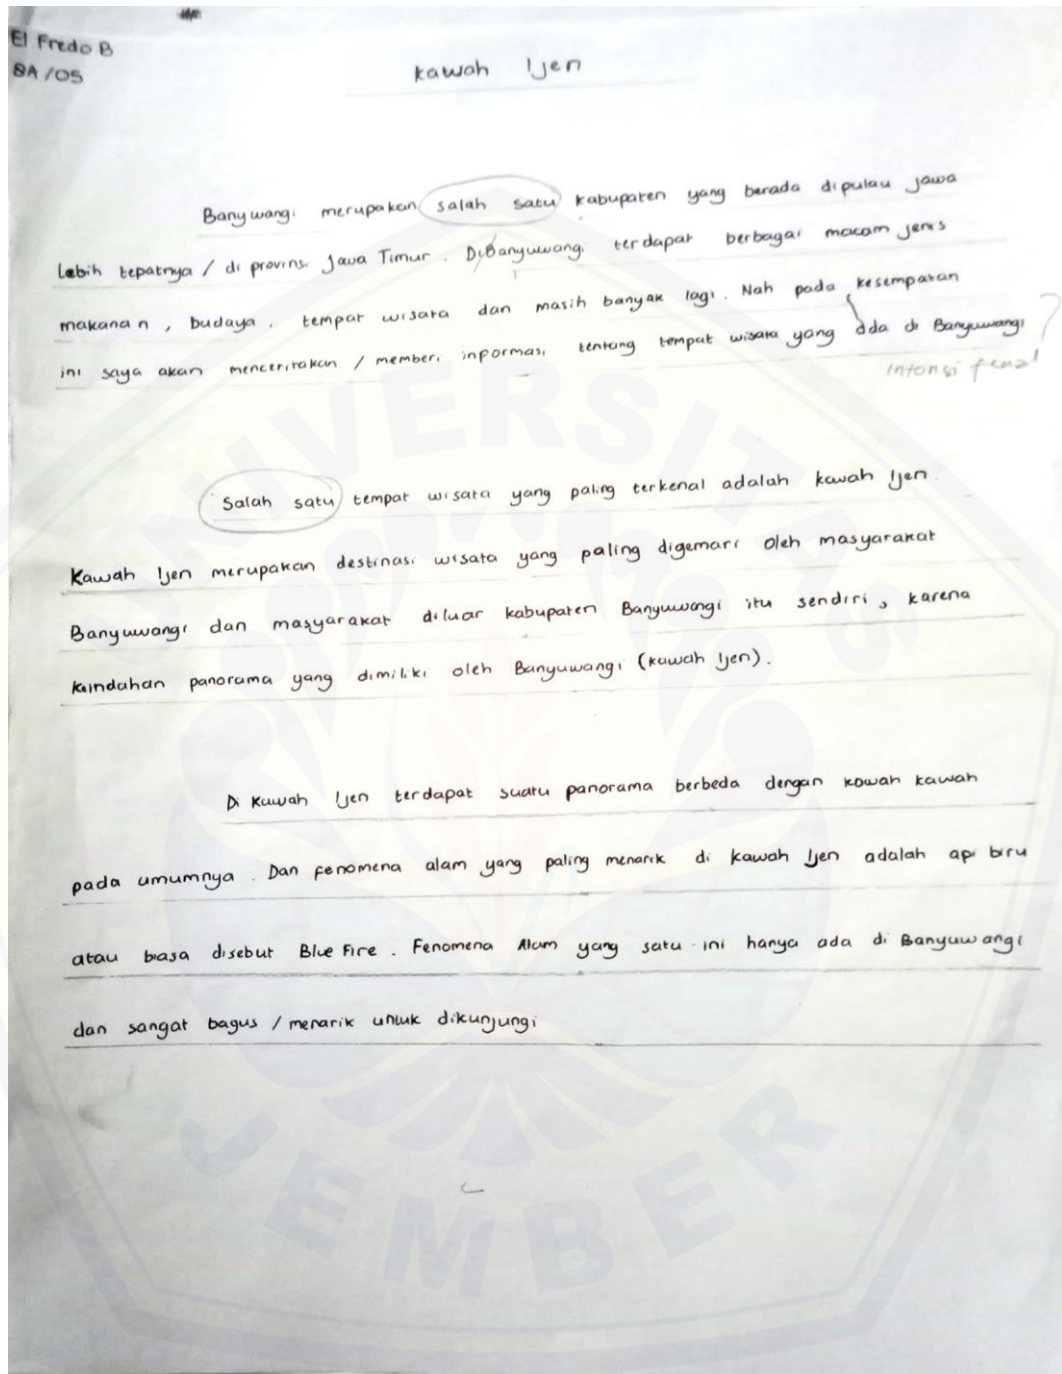 El Fredo B
8A / 05
Kawah Ijen
Banywangi merupakan salah satu kabupaten yang berada dipulau jawa
Lebih tepatnya / di provinsi Jawa Timur. DiBanyuwangi terdapat berbagai macam jenis
makanan, budaya, tempat wisata dan masih banyak lagi. Nah pada kesempatan
ini saya akan menceritakan / memberi inpormasi tentang tempat wisata yang ada di Banyuwangi
?
Salah satu tempat wisata yang paling terkenal adalah kawah Ijen.
Kawah Ijen merupakan destinasi wisata yang paling digemari oleh masyarakat
Banyuwangi dan masyarakat diluar kabupaten Banyuwangi itu sendiri, karena
kaindahan panorama yang dimiliki oleh Banyuwangi (kawah Ijen).
Di Kawah Ijen terdapat suatu panorama berbeda dengan kawah kawah
pada umumnya. Dan fenomena alam yang paling menarik di kawah Ijen adalah api biru
atau biasa disebut Blue Fire. Fenomena Alam yang satu ini hanya ada di Banyuwangi
dan sangat bagus / menarik untuk dikunjungi
UNIVERSITAS
JEMBER